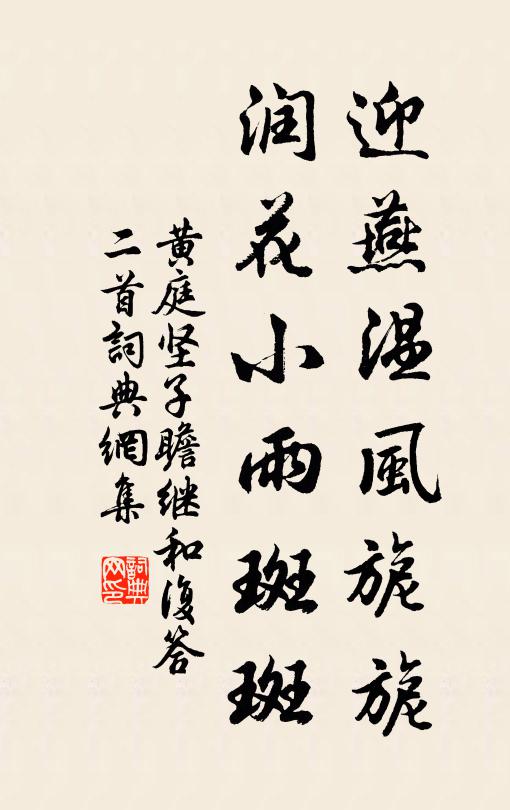 迎燕温風旎旎
润花小雨斑斑
黄庭坚子瞻继和復答
二首詞典網集
詞典网印